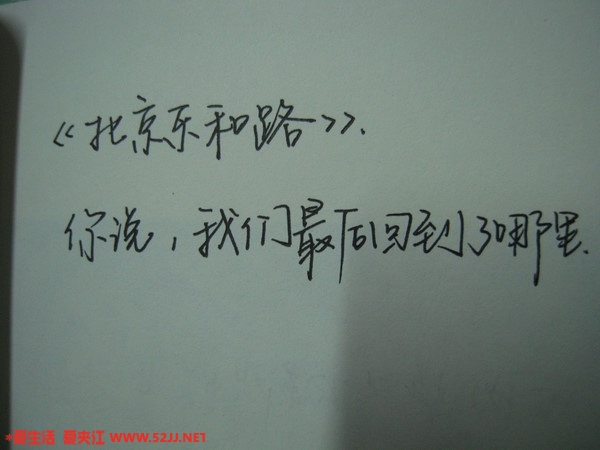 《北京东和路》.
你说，我们最后回到了哪里.
*爱生活 爱夹江 WWW.52JJ.NET